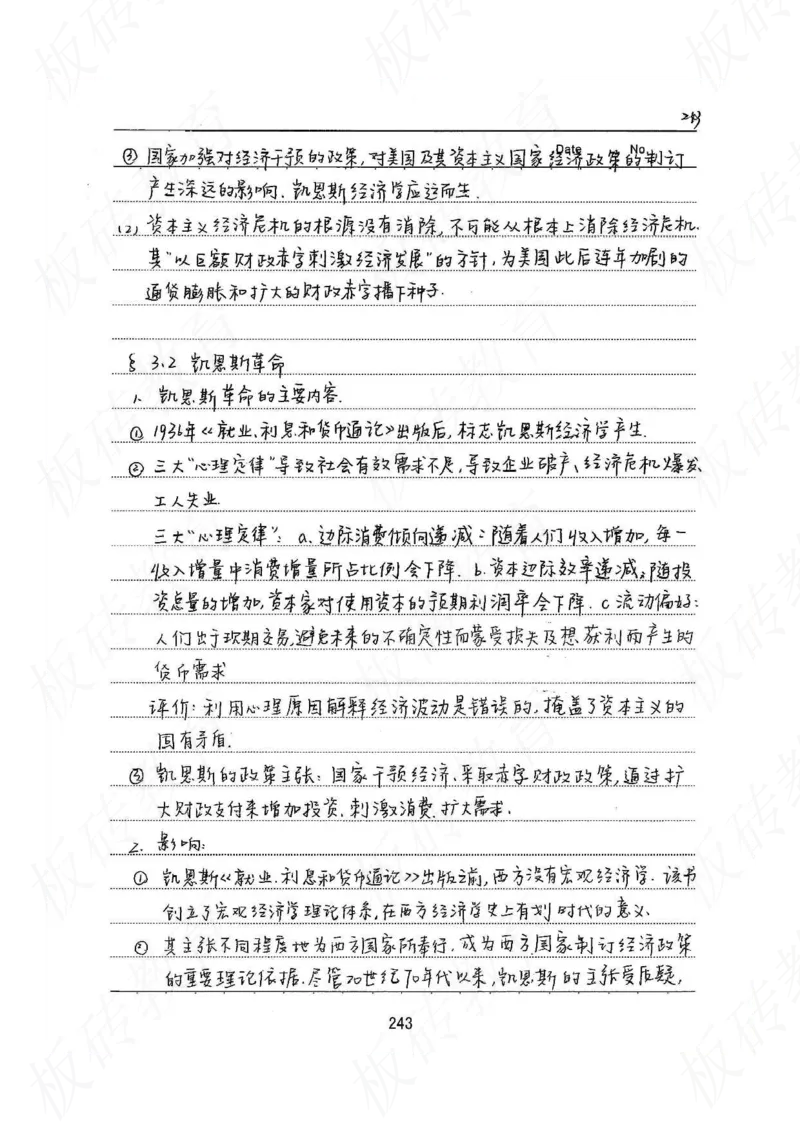 243
Date No
③ 国家加强对经济干预的政策,对美国及其资本主义国家经济政策的制订
产生深远的影响.凯恩斯经济学应运而生.
(2) 资本主义经济危机的根源没有消除,不可能从根本上消除经济危机.
其"以巨额财政赤字刺激经济发展"的方针,为美国此后连年加剧的
通货膨胀和扩大的财政赤字播下种子.
§ 3.2 凯恩斯革命
1. 凯恩斯革命的主要内容.
① 1936年《就业、利息和货币通论》出版后,标志凯恩斯经济学产生.
② 三大"心理定律"导致社会有效需求不足,导致企业破产、经济危机爆发、
工人失业.
三大"心理定律":a.边际消费倾向递减:随着人们收入增加,每一
收入增量中消费增量所占比例会下降. b.资本边际效率递减:随投
资总量的增加,资本家对使用资本的预期利润率会下降. c流动偏好:
人们出于现期交易,避免未来的不确定性而蒙受损失及想获利而产生的
货币需求
评价:利用心理原因解释经济波动是错误的,掩盖了资本主义的
固有矛盾.
③ 凯恩斯的政策主张:国家干预经济.采取赤字财政政策,通过扩
大财政支付来增加投资.刺激消费.扩大需求.
2. 影响:
① 凯恩斯《就业.利息和货币通论》出版之前,西方没有宏观经济学.该书
创立了宏观经济学理论体系,在西方经济学史上有划时代的意义.
② 其主张不同程度地为西方国家所奉行.成为西方国家制订经济政策
的重要理论依据.尽管20世纪70年代以来,凯恩斯的主张受质疑,
243
板砖教育